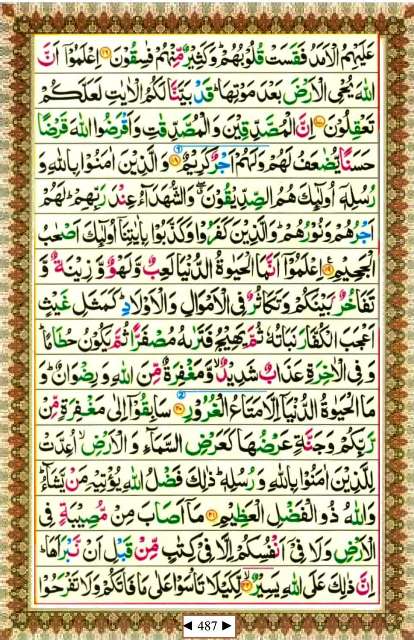 عَلَيْهِمُ الْاَمَدُ فَقَسَتْ قُلُوْبُهُمْ ؕ وَكَثِيْرٌ مِّنْهُمْ فٰسِقُوْنَ ﴿۱۶﴾ اِعْلَمُوْۤا اَنَّ
اللّٰهَ يُحْيِ الْاَرْضَ بَعْدَ مَوْتِهَا ؕ قَدْ بَيَّنَّا لَكُمُ الْاٰيٰتِ لَعَلَّكُمْ
تَعْقِلُوْنَ ﴿۱۷﴾ اِنَّ الْمُصَّدِّقِيْنَ وَالْمُصَّدِّقٰتِ وَاَقْرَضُوا اللّٰهَ قَرْضًا
حَسَنًا يُّضٰعَفُ لَهُمْ وَلَهُمْ اَجْرٌ كَرِيْمٌ ﴿۱۸﴾ وَالَّذِيْنَ اٰمَنُوْا بِاللّٰهِ وَ
رُسُلِهٖۤ اُولٰٓئِكَ هُمُ الصِّدِّيْقُوْنَ ۖۗ وَالشُّهَدَآءُ عِنْدَ رَبِّهِمْ ؕ لَهُمْ
اَجْرُهُمْ وَنُوْرُهُمْ ؕ وَالَّذِيْنَ كَفَرُوْا وَكَذَّبُوْا بِاٰيٰتِنَاۤ اُولٰٓئِكَ اَصْحٰبُ
الْجَحِيْمِ ﴿۱۹﴾ اِعْلَمُوْۤا اَنَّمَا الْحَيٰوةُ الدُّنْيَا لَعِبٌ وَّلَهْوٌ وَّزِيْنَةٌ وَّ
تَفَاخُرٌۢ بَيْنَكُمْ وَتَكَاثُرٌ فِى الْاَمْوَالِ وَالْاَوْلَادِ ؕ كَمَثَلِ غَيْثٍ
اَعْجَبَ الْكُفَّارَ نَبَاتُهٗ ثُمَّ يَهِيْجُ فَتَرٰىهُ مُصْفَرًّا ثُمَّ يَكُوْنُ حُطَامًا ؕ
وَفِى الْاٰخِرَةِ عَذَابٌ شَدِيْدٌ ۙ وَّمَغْفِرَةٌ مِّنَ اللّٰهِ وَرِضْوَانٌ ؕ وَ
مَا الْحَيٰوةُ الدُّنْيَاۤ اِلَّا مَتَاعُ الْغُرُوْرِ ﴿۲۰﴾ سَابِقُوْۤا اِلٰى مَغْفِرَةٍ مِّنْ
رَّبِّكُمْ وَجَنَّةٍ عَرْضُهَا كَعَرْضِ السَّمَآءِ وَالْاَرْضِ ۙ اُعِدَّتْ
لِلَّذِيْنَ اٰمَنُوْا بِاللّٰهِ وَرُسُلِهٖ ؕ ذٰلِكَ فَضْلُ اللّٰهِ يُؤْتِيْهِ مَنْ يَّشَآءُ ؕ
وَاللّٰهُ ذُو الْفَضْلِ الْعَظِيْمِ ﴿۲۱﴾ مَاۤ اَصَابَ مِنْ مُّصِيْبَةٍ فِى
الْاَرْضِ وَلَا فِىْۤ اَنْفُسِكُمْ اِلَّا فِىْ كِتٰبٍ مِّنْ قَبْلِ اَنْ نَّبْرَاَهَا ؕ
اِنَّ ذٰلِكَ عَلَى اللّٰهِ يَسِيْرٌ ﴿۲۲﴾ لِّكَيْلَا تَاْسَوْا عَلٰى مَا فَاتَكُمْ وَلَا تَفْرَحُوْا
◄ 487 ►